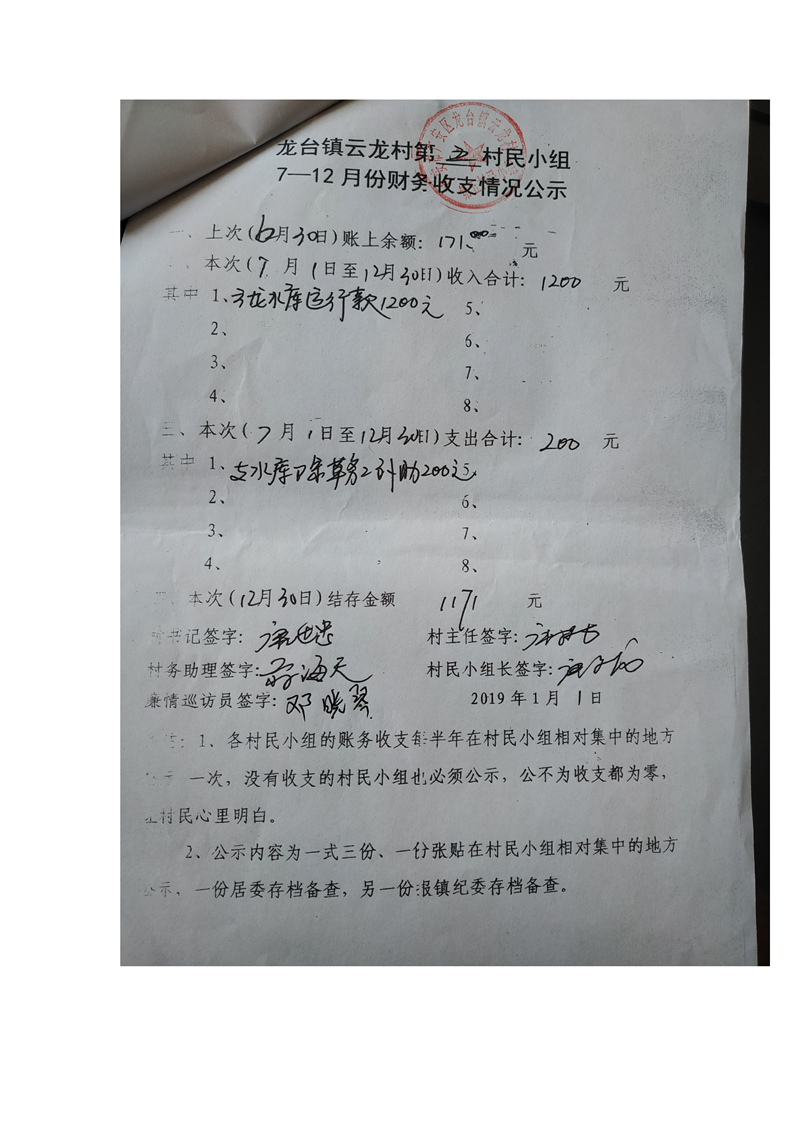 龙台镇云龙村第 村民小组
7—12月份财务收支情况公示
一、上次(6月30日)账上余额: 171 元
、本次(7月1日至12月30日)收入合计: 1200 元
其中 1、云龙水库运行款1200元 5、
2、 6、
3、 7、
4、 8、
三、本次(7月1日至12月30日)支出合计: 200 元
其中 1、支水库除草务工补助200元 5、
2、 6、
3、 7、
4、 8、
四、本次(12月30日)结存金额 1171 元
书记签字: 村主任签字:
村务助理签字: 海天 村民小组长签字:
廉情巡访员签字: 邓晓琴 2019年1月1日
1、各村民小组的账务收支每半年在村民小组相对集中的地方
公示一次,没有收支的村民小组也必须公示,公不为收支都为零,
村民心里明白。
2、公示内容为一式三份、一份张贴在村民小组相对集中的地方
公示,一份居委存档备查,另一份报镇纪委存档备查。